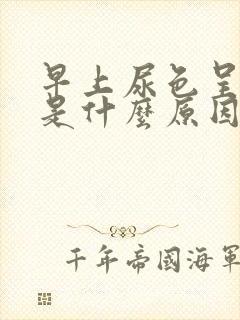 早上尿色呈
是什麼原因
千年帝國海軍